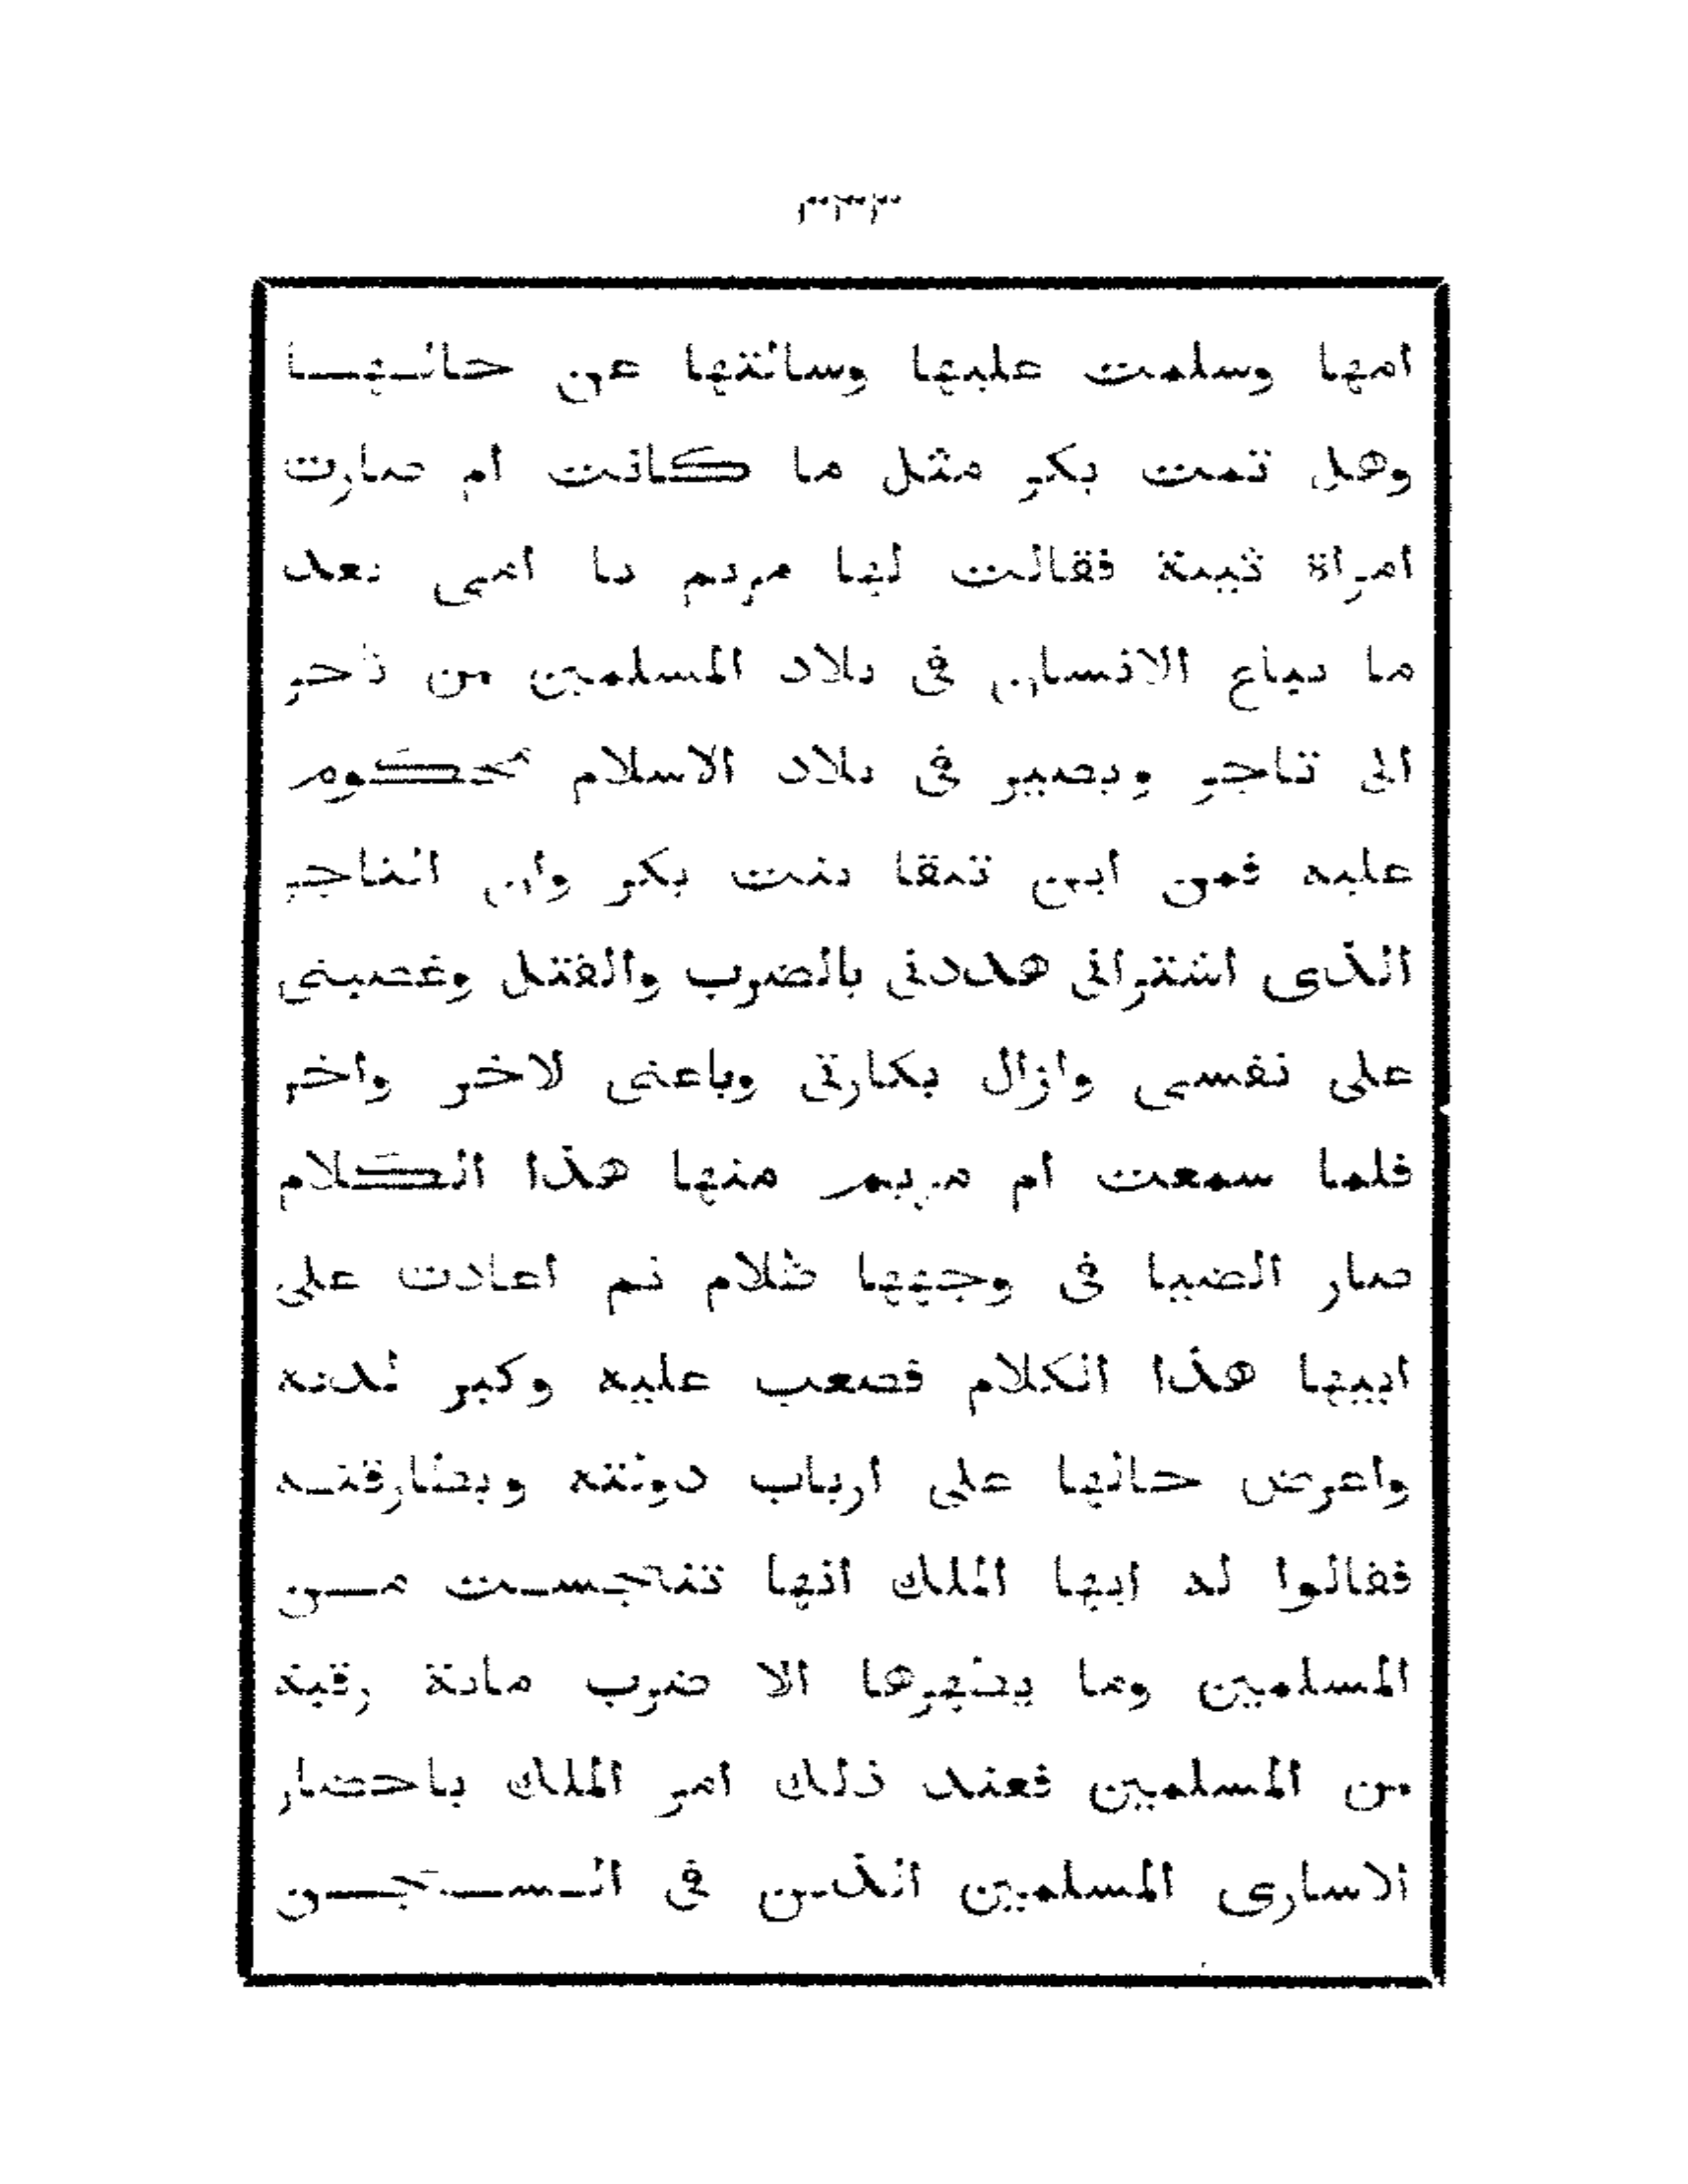 ٣٣٣
امها وسلمت عليها وسالتها عن حالها
وهل تمت بكر مثل ما كانت ام صارت
امراة ثيبة فقالت لها مريم يا امى بعد
ما يباع الانسان فى بلاد المسلمين من تاجر
الى تاجر ويصير فى بلاد الاسلام محكوم
عليه فمن اين تبقا بنت بكر وان التاجر
الذى اشترانى هددنى بالضرب والقتل وغصبنى
على نفسى وازال بكارتى وباعنى لاخر واخر
فلما سمعت ام مريم منها هذا الكلام
صار الضيا فى وجهها ظلام ثم اعادت على
ابيها هذا الكلام فصعب عليه وكبر لديه
واعرض حالها على ارباب دولته وبطارقته
فقالوا له ايها الملك انها تنجست من
المسلمين وما يطهرها الا ضرب ماية رقبة
من المسلمين فعند ذلك امر الملك باحضار
الاسارى المسلمين الذين فى السجن